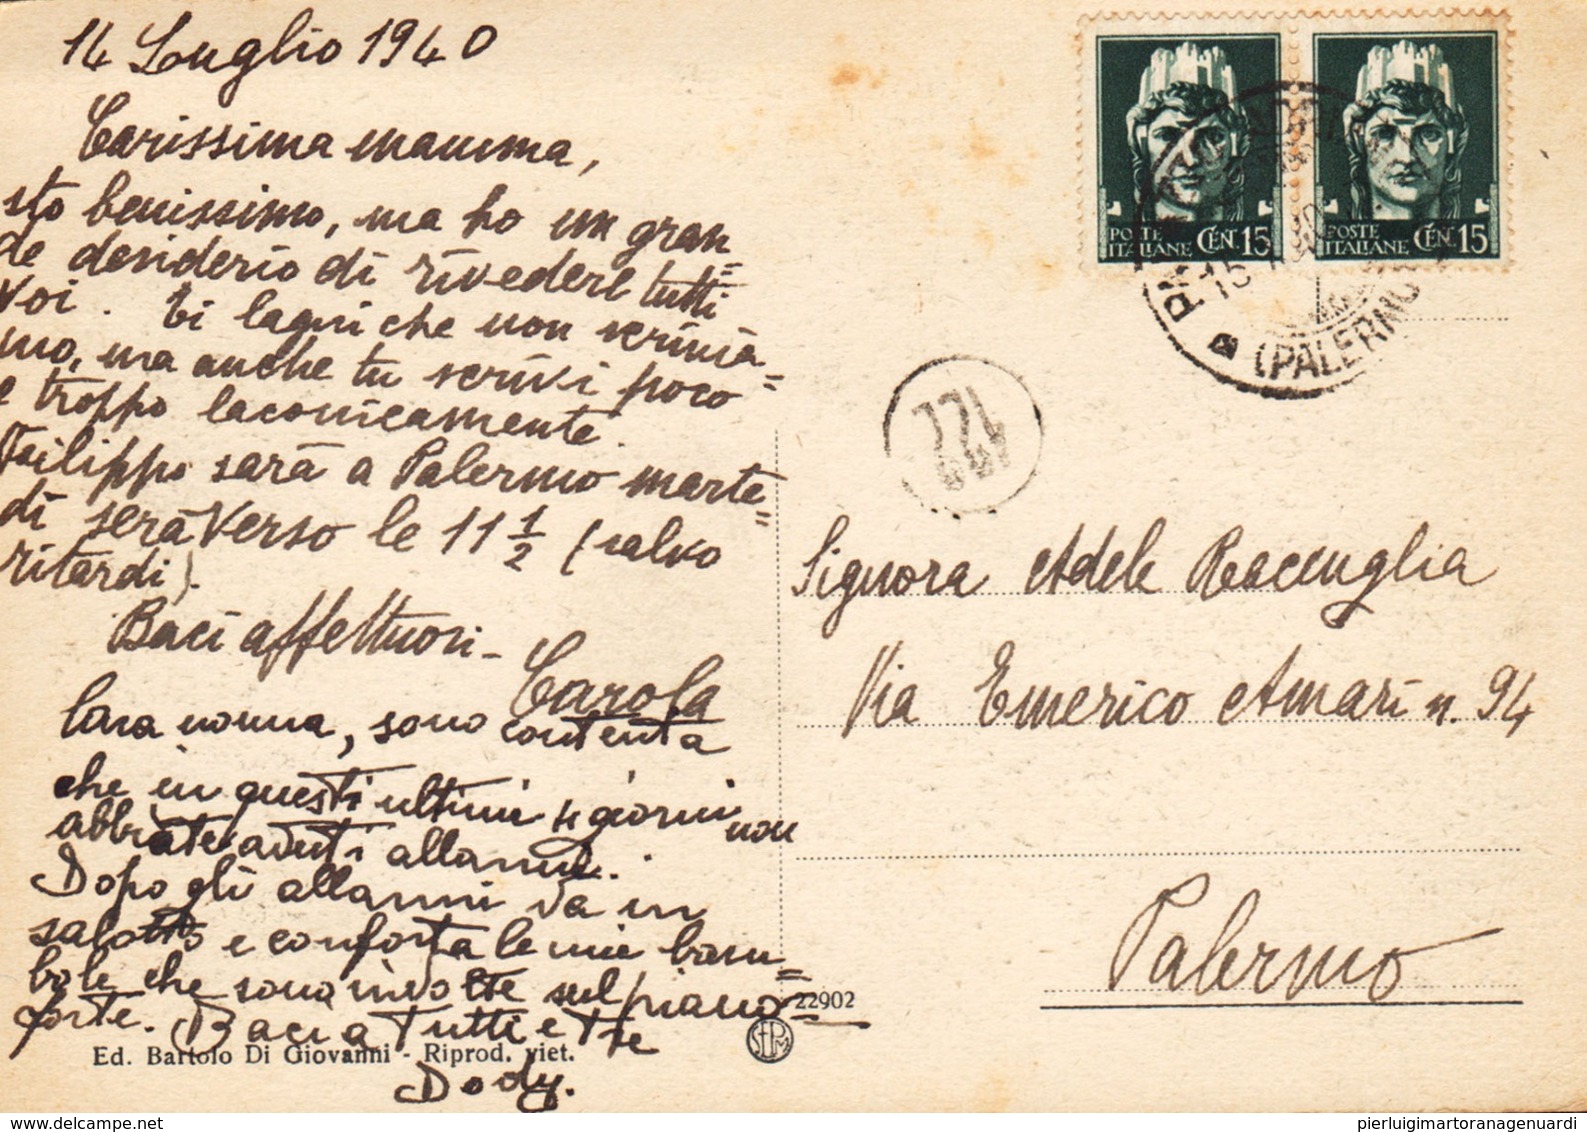 14 Luglio 1940
Carissima mamma,
sto benissimo, ma ho un gran=
de desiderio di rivedere tutti
voi. ti lagni che non scrivia=
mo, ma anche tu scrivi poco
e troppo laconicamente.
Filippo sarà a Palermo marte=
dì sera verso le 11 1/2 (salvo
ritardi).
Baci affettuosi -
Carola
Cara nonna, sono contenta
che in questi ultimi 4 giorni non
abbiate avuti allarmi.
Dopo gli allarmi va in
salotto e conforta le mie bam=
bole che sono involte sul piano=
forte. Baci a tutti e te
Dody.
Ed. Bartolo Di Giovanni - Riprod. viet.
22902
POSTE ITALIANE CEN. 15
POSTE ITALIANE CEN. 15
(PALERMO
122
Signora Adele Raccuglia
Via Emerico Amari n. 94
Palermo
delcampe.net
pierluigimartoranagenuardi